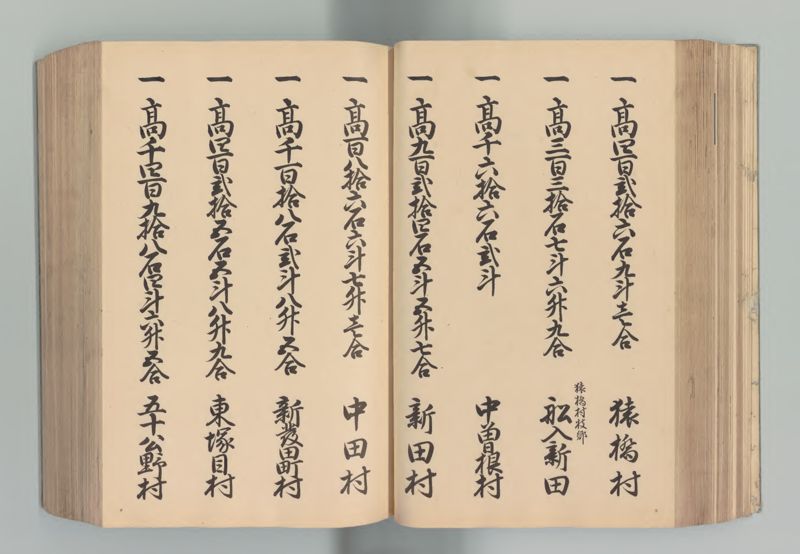 一 高四百弐拾六石九斗壱合 猿橋村
一 高三百三拾石七斗六升九合 猿橋村枝郷 舩入新田
一 高千六拾六石弐斗 中曽根村
一 高九百弐拾四石五斗五升七合 新田村
一 高百八拾六石六斗七升壱合 中田村
一 高千百拾八石弐斗八升五合 新發田町村
一 高四百弐拾五石五斗八升九合 東塚目村
一 高千四百九拾八石四斗六升五合 五十公野村